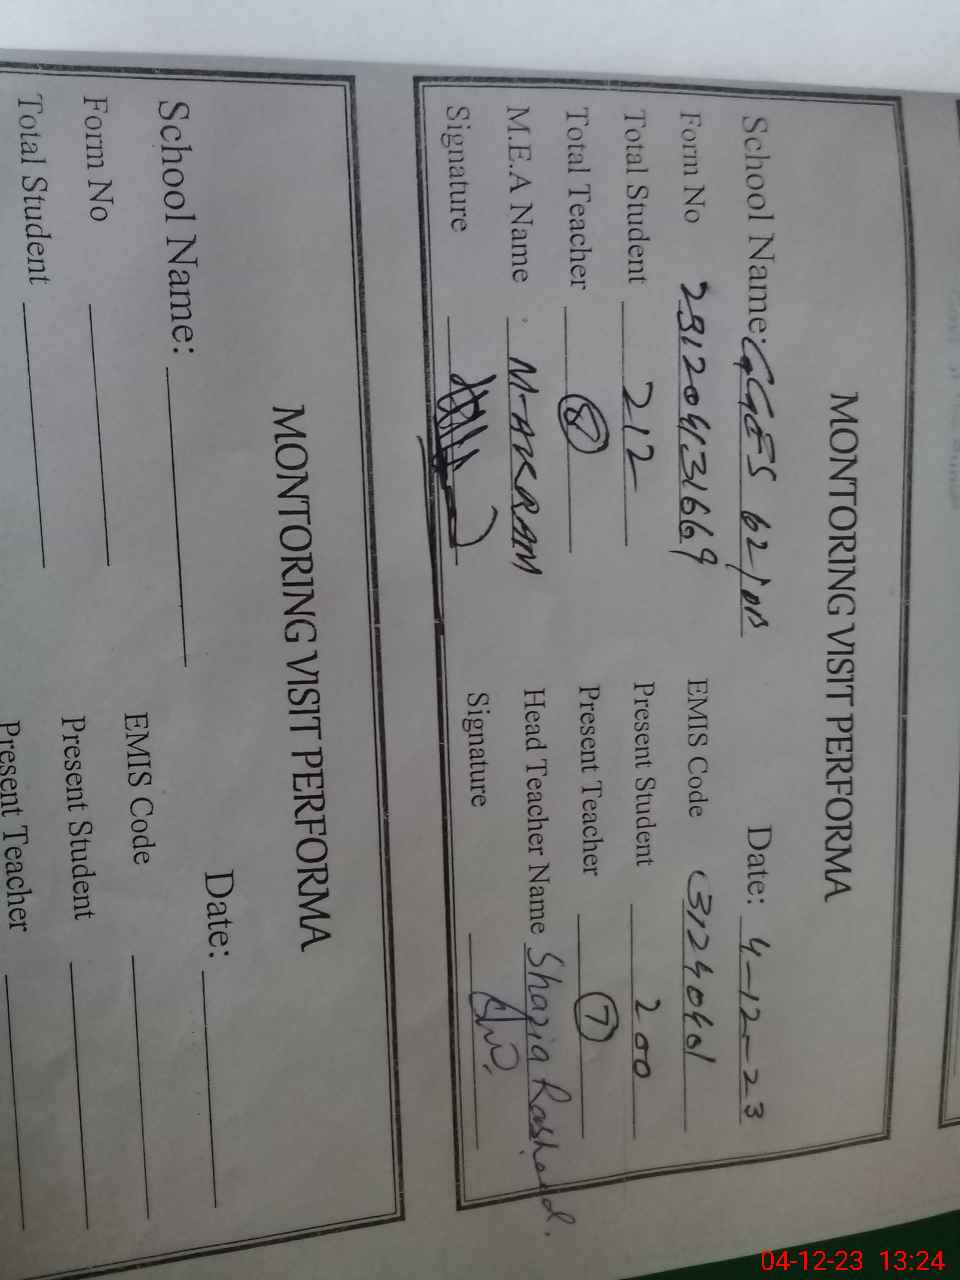 MONTORING VISIT PERFORMA
School Name: GGES 62/DB Date: 4-12-23
Form No 231204131669 EMIS Code 31240401
Total Student 212 Present Student 200
Total Teacher 8 Present Teacher 7
M.E.A Name M-AKRAM Head Teacher Name Shazia Rasheed.
Signature Signature
MONTORING VISIT PERFORMA
School Name: Date:
Form No EMIS Code
Total Student Present Student
Present Teacher
04-12-23 13:24